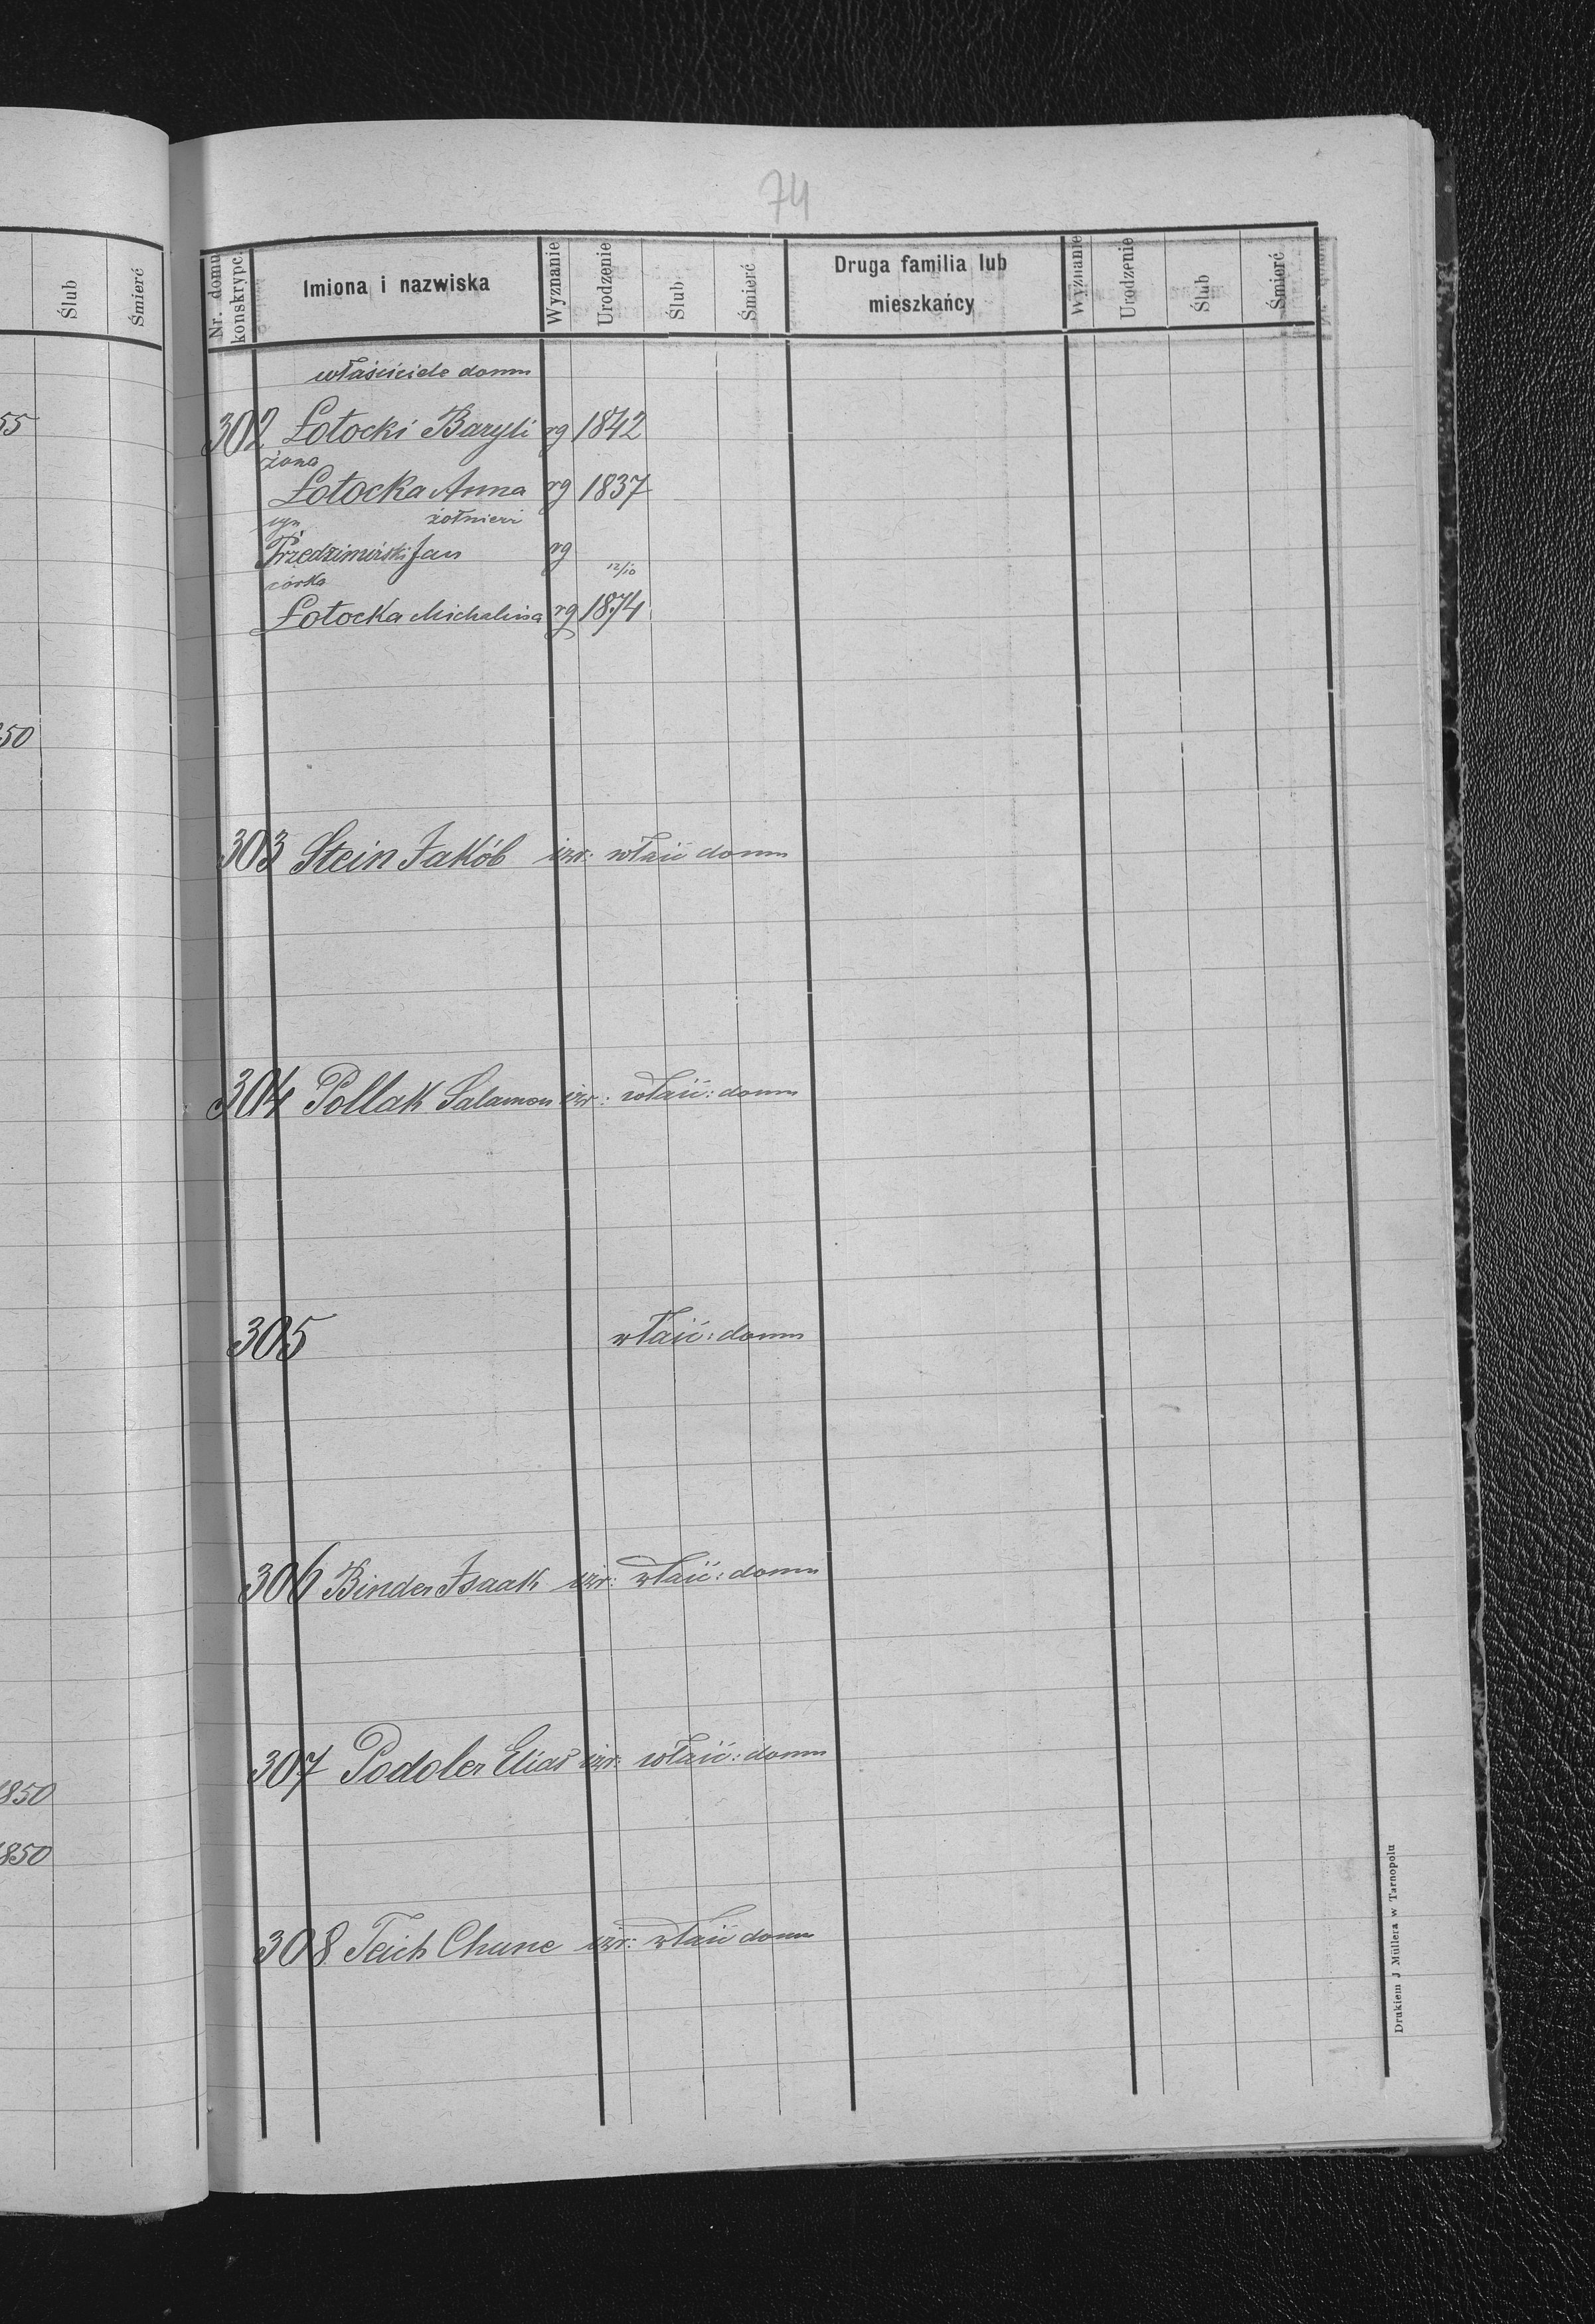 74
Nr. domu konskrypc.
Imiona i nazwiska
Wyznanie
Urodzenie
Ślub
Śmierć
Druga familia lub mieszkańcy
Wyznanie
Urodzenie
Ślub
Śmierć
Ślub
Śmierć
właściciele domu
302 Łotocki Bazyli rg 1842
żona
Łotocka Anna rg 1837
syn żołnierz
Przedzimirski Jan rg
córka 12/10
Łotocka Michalina rg 1874
303 Stein Jakób izr: właść domu
304 Pollak Salamon izr: właść: domu
305 właść: domu
306 Binder Isaak izr: właść: domu
307 Podoler Elias izr: właść: domu
308 Teich Chune izr: właść domu
55
50
1850
1850
Drukiem J Müllera w Tarnopolu